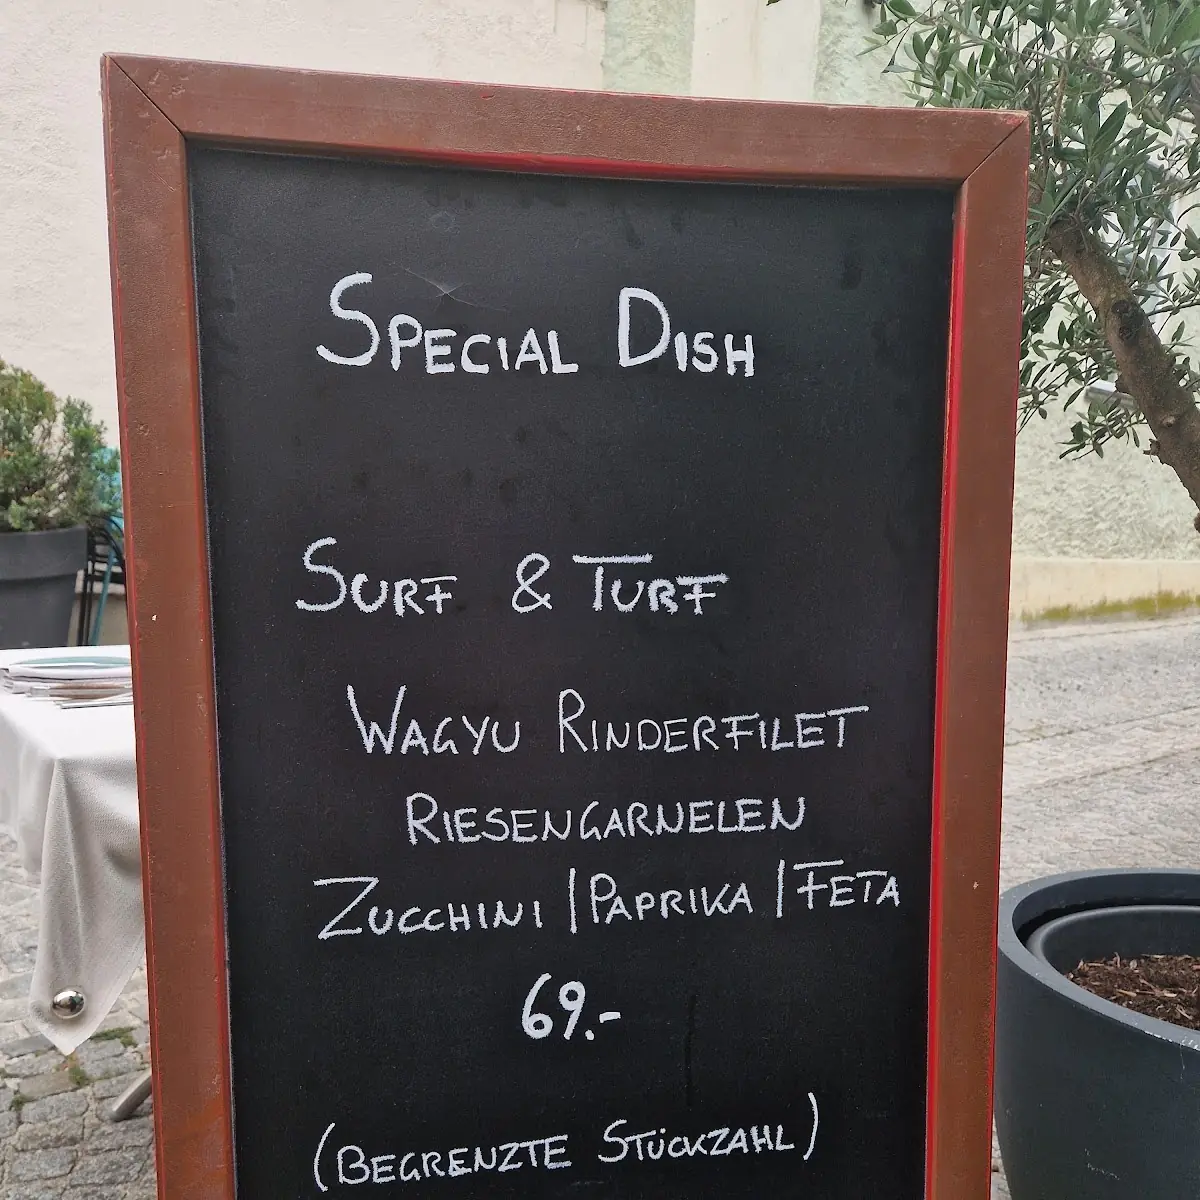 SPECIAL DISH
SURF & TURF
WAGYU RINDERFILET
RIESENGARNELEN
ZUCCHINI | PAPRIKA | FETA
69.-
(BEGRENZTE STÜCKZAHL)